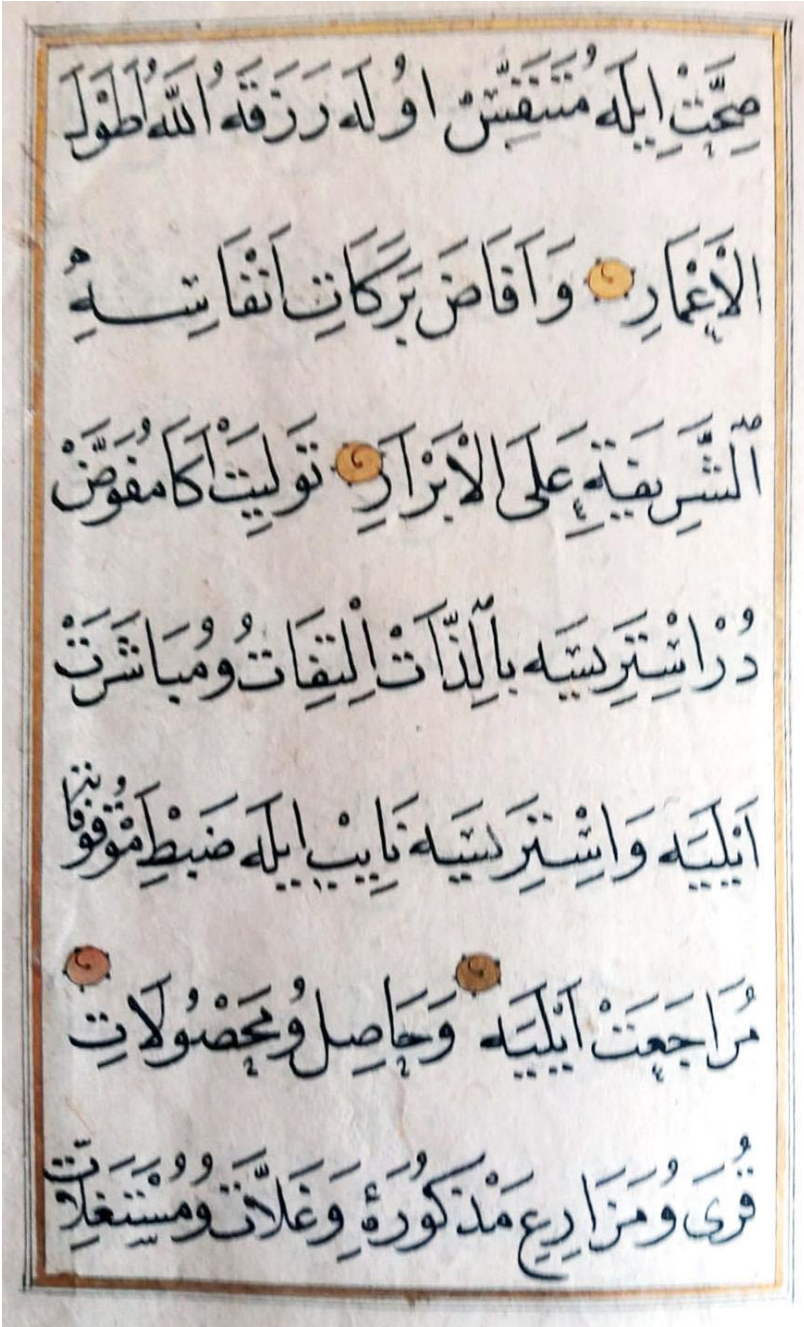 صِحَّتِ اِيلَه مُتَنَفِّسْ اوُلَه رَزَقَهُ اللّٰه اَطْوَلَ
الْاَعْمَارِ وَاَفَاضَ بَرَكَاتِ اَنْفَاسِهِ
الشَّرِيفَةِ عَلَى الْاَبْرَارِ تَوَلِيَتْ اَكَا مُفَوَّضْ
دُرْ اِسْتَرِيسَه بِالذَّاتْ اِلْتِفَاتُ وُمُبَاشَرَتْ
اَيْلِيَه وَاِسْتَرِيسَه نَايِبْ اِيلَه ضَبْطِ مَوْقُوفَاتَه
مُرَاجَعَتْ اَيْلِيَه وَحَاصِلُ وُمَحْصُولَاتِ
قُرَى وُمَزَارِعِ مَذْكُورَهٔ وَغَلَّاتُ وُمُسْتَغَلَّاتِ